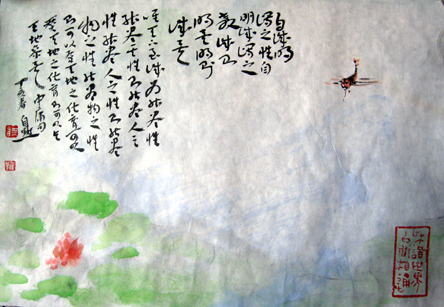 自誠明
謂之性自
明誠謂之
教誠則
明矣明則
誠矣
唯天下至誠為能盡其性
能盡其性則能盡人之
性能盡人之性則能盡
物之性能盡物之性
則可以贊天地之化育可以
贊天地之化育則可以與
天地參矣 中庸句